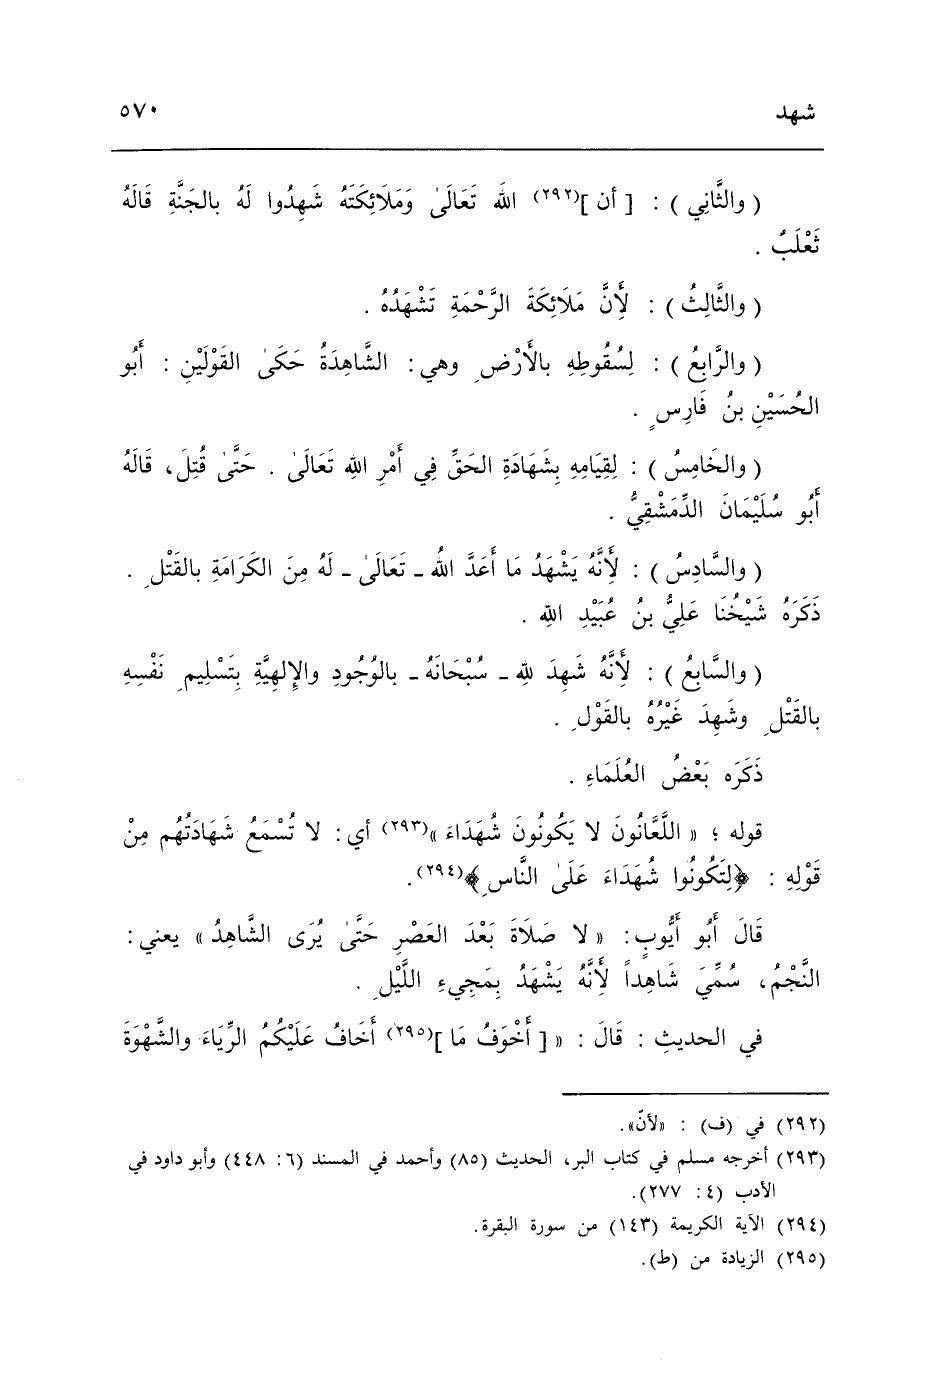 شهد ٥٧٠
( والثَّانِي ) : [ أن ](٢٩٢) اللهَ تَعَالَىٰ وَمَلَائِكَتَهُ شَهِدُوا لَهُ بالجَنَّةِ قَالَهُ
ثَعْلَبٌ .
( والثَّالِثُ ) : لأَنَّ مَلَائِكَةَ الرَّحْمَةِ تَشْهَدُهُ .
( والرَّابِعُ ) : لِسُقُوطِهِ بالأَرْضِ وهي : الشَّاهِدَةُ حَكَىٰ القَوْلَيْنِ : أَبُو
الحُسَيْنِ بنُ فَارِسٍ .
( والخَامِسُ ) : لِقِيَامِهِ بِشَهَادَةِ الحَقِّ فِي أَمْرِ اللهِ تَعَالَىٰ . حَتَّىٰ قُتِلَ، قَالَهُ
أَبُو سُلَيْمَانَ الدِّمَشْقِيُّ .
( والسَّادِسُ ) : لأَنَّهُ يَشْهَدُ مَا أَعَدَّ اللهُ ـ تَعَالَىٰ ـ لَهُ مِنَ الكَرَامَةِ بالقَتْلِ .
ذَكَرَهُ شَيْخُنَا عَلِيُّ بنُ عُبَيْدِ اللهِ .
( والسَّابِعُ ) : لأَنَّهُ شَهِدَ للهِ ـ سُبْحَانَهُ ـ بالوُجُودِ والإِلهِيَّةِ بِتَسْلِيمِ نَفْسِهِ
بالقَتْلِ وشَهِدَ غَيْرُهُ بالقَوْلِ .
ذَكَرَه بَعْضُ العُلَمَاءِ .
قوله ؛ « اللَّعَّانُونَ لا يَكُونُونَ شُهَدَاءَ »(٢٩٣) أي : لا تُسْمَعُ شَهَادَتُهُم مِنْ
قَوْلِهِ : ﴿لِتَكُونُوا شُهَدَاءَ عَلَىٰ النَّاسِ﴾(٢٩٤).
قَالَ أَبُو أَيُّوبٍ : « لا صَلَاةَ بَعْدَ العَصْرِ حَتَّىٰ يُرَى الشَّاهِدُ » يعني :
النَّجْمُ، سُمِّيَ شَاهِداً لأَنَّهُ يَشْهَدُ بِمَجِيءِ اللَّيْلِ .
في الحديثِ : قَالَ : « [ أَخْوَفُ مَا ](٢٩٥) أَخَافُ عَلَيْكُمُ الرِّيَاءَ والشَّهْوَةَ
(٢٩٢) في (ف) : «لأنّ».
(٢٩٣) أخرجه مسلم في كتاب البر، الحديث (٨٥) وأحمد في المسند (٦ : ٤٤٨) وأبو داود في
الأدب (٤ : ٢٧٧).
(٢٩٤) الآية الكريمة (١٤٣) من سورة البقرة.
(٢٩٥) الزيادة من (ط).